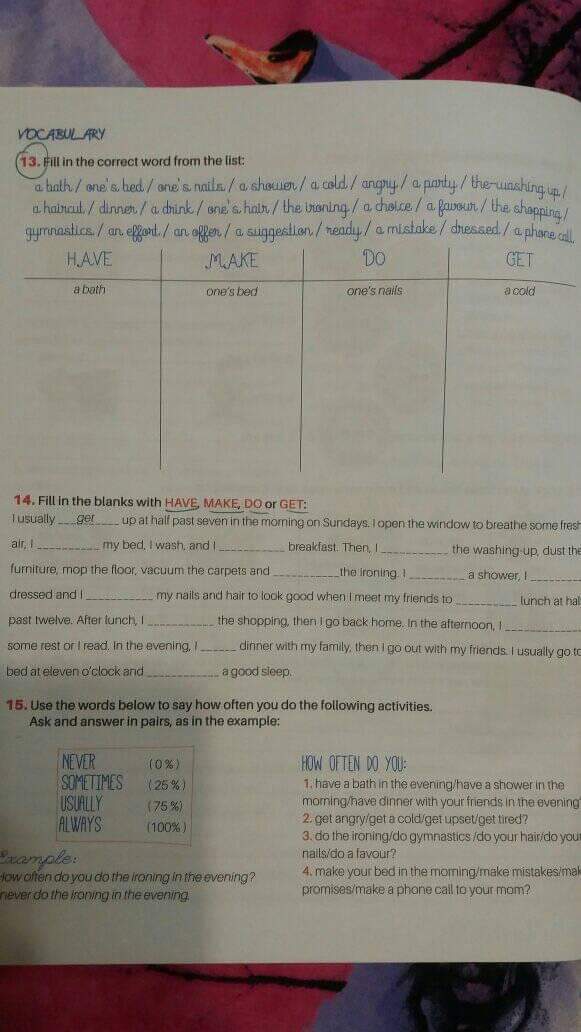 VOCABULARY
13. Fill in the correct word from the list:
a bath / one's bed / one's nails / a shower / a cold / angry / a party / the washing up /
a haircut / dinner / a drink / one's hair / the ironing / a choice / a favour / the shopping /
gymnastics / an effort / an offer / a suggestion / ready / a mistake / dressed / a phone call
HAVE MAKE DO GET
a bath one's bed one's nails a cold
14. Fill in the blanks with HAVE, MAKE, DO or GET:
I usually ___get____ up at half past seven in the morning on Sundays. I open the window to breathe some fresh
air, I __________ my bed, I wash, and I ___________ breakfast. Then, I ___________ the washing-up, dust the
furniture, mop the floor, vacuum the carpets and ___________the ironing. I _________ a shower, I ________
dressed and I ___________ my nails and hair to look good when I meet my friends to __________ lunch at hal
past twelve. After lunch, I ___________ the shopping, then I go back home. In the afternoon, I ____________
some rest or I read. In the evening, I ______ dinner with my family, then I go out with my friends. I usually go to
bed at eleven o'clock and ____________ a good sleep.
15. Use the words below to say how often you do the following activities.
Ask and answer in pairs, as in the example:
NEVER (0%)
SOMETIMES (25%)
USUALLY (75%)
ALWAYS (100%)
Example:
How often do you do the ironing in the evening?
never do the ironing in the evening.
HOW OFTEN DO YOU:
1. have a bath in the evening/have a shower in the
morning/have dinner with your friends in the evening?
2. get angry/get a cold/get upset/get tired?
3. do the ironing/do gymnastics /do your hair/do your
nails/do a favour?
4. make your bed in the morning/make mistakes/mak
promises/make a phone call to your mom?